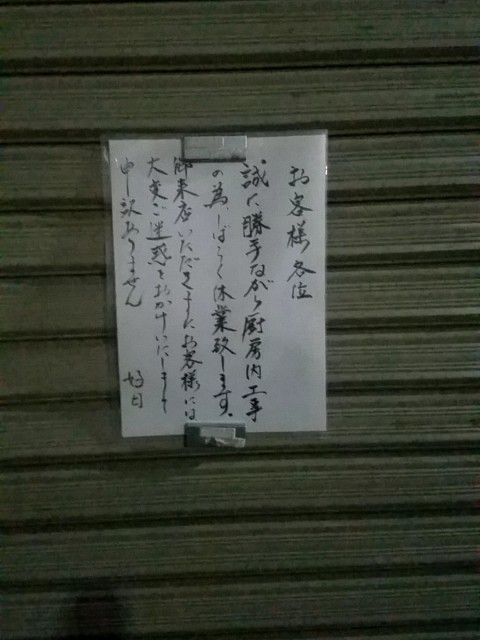 お客様各位
誠に勝手ながら厨房内工事
の為、しばらく休業致します。
御来店いただきましたお客様には
大変ご迷惑をおかけいたしまして
申訳ありません
好日